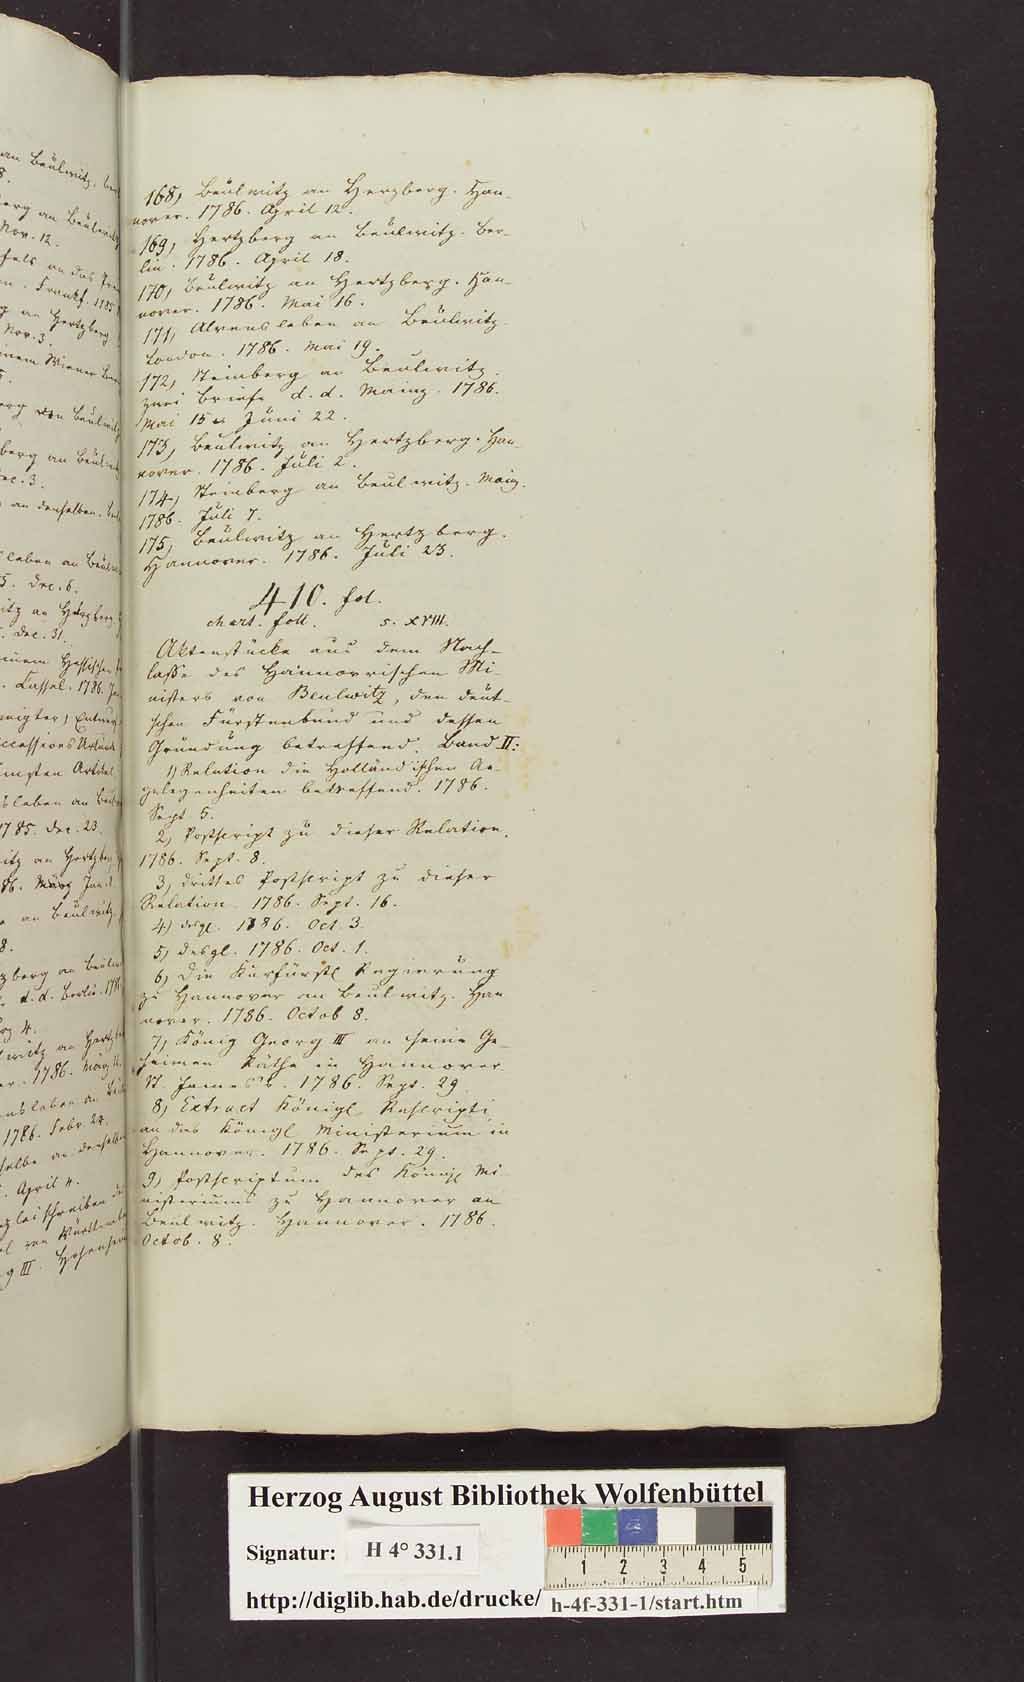 168, Beulwitz an Herzberg. Han-
nover. 1786. April 12.
169, Hertzberg an Beulwitz. Ber-
lin. 1786. April 18.
170, Beulwitz an Hertzberg. Han-
nover. 1786. Mai 16.
171, Alvensleben an Beulwitz.
London. 1786. Mai 19.
172, Steinberg an Beulwitz.
zwei Briefe d. d. Mainz. 1786.
Mai 15 u. Juni 22.
173, Beulwitz an Hertzberg. Han-
nover. 1786. Juli 2.
174, Steinberg an Beulwitz. Mainz.
1786. Juli 7.
175, Beulwitz an Hertzberg.
Hannover. 1786. Juli 23.
410. fol.
chart. foll. s. XVIII.
Aktenstücke aus dem Nach-
lasse des Hannovrischen Mi-
nisters von Beulwitz, den deut-
schen Fürstenbund und dessen
Gründung betreffend. Band II:
1) Relation die Holländischen An-
gelegenheiten betreffend. 1786.
Sept 5.
2, Postscript zu dieser Relation.
1786. Sept. 8.
3, drittes Postscript zu dieser
Relation. 1786. Sept. 16.
4) desgl. 1786. Oct. 3.
5, desgl. 1786. Oct. 1.
6, Die Kurfürstl Regierung
zu Hannover an Beulwitz. Han
nover. 1786. Octob 8.
7, König Georg III an seine Ge-
heimen Räthe in Hannover.
St. James's. 1786. Sept. 29.
8, Extract Königl. Rescripti
an das Königl Ministerium in
Hannover. 1786. Sept. 29.
9, Postscriptum des Königl Mi
nisteriums zu Hannover an
Beulwitz. Hannover. 1786.
Octob. 8.
Herzog August Bibliothek Wolfenbüttel
Signatur: H 4° 331.1
http://diglib.hab.de/drucke/ h-4f-331-1/start.htm
1 2 3 4 5